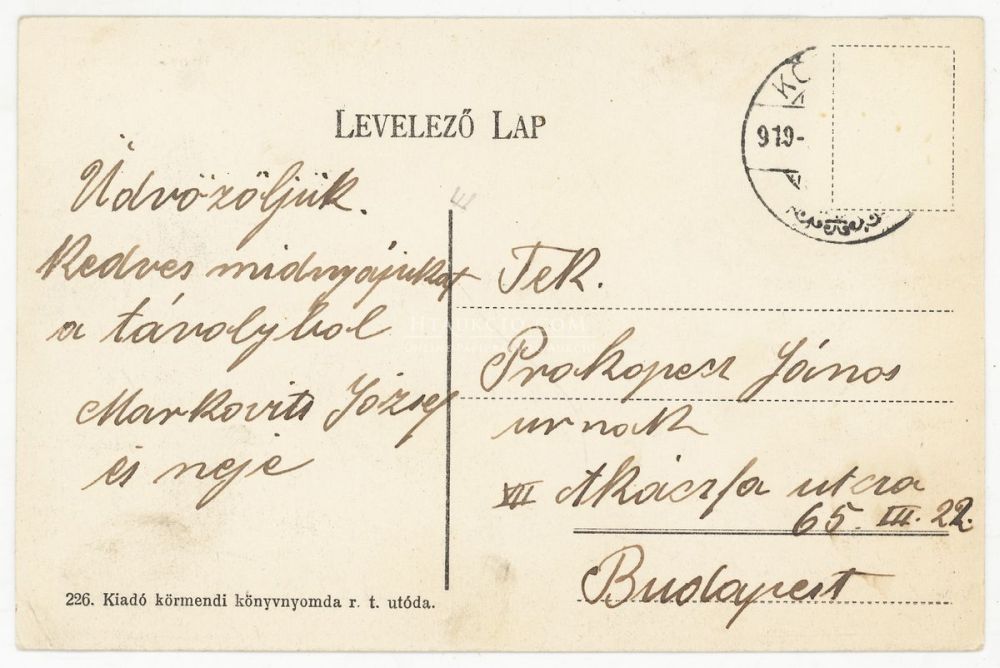 LEVELEZŐ LAP
KÖ
919-
Üdvözöljük.
Kedves midnyájukat
a távolyból
Markovits József
és neje
Tek.
Prokopecz János
urnak
VII Akáczfa utcza
65. III. 22.
Budapest
226. Kiadó körmendi könyvnyomda r. t. utóda.
HTAUKCIO.COM